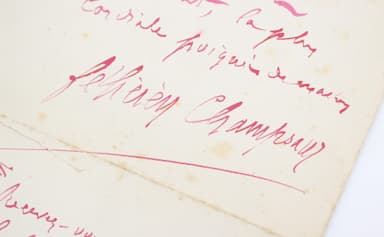 la plus
Cordiale poignée de main
Félicien Champsaur
Recevez